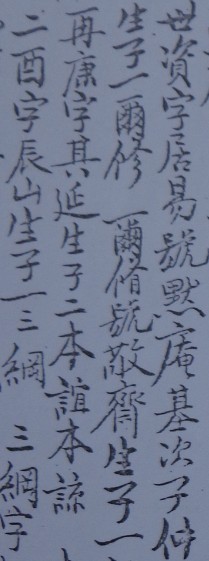 世資字居易號默庵基次子仲
生子一爾修 一爾脩號敬齋生子一
再康字其延生子二本誼本諒
二酉字辰山生子一三綱 三綱字